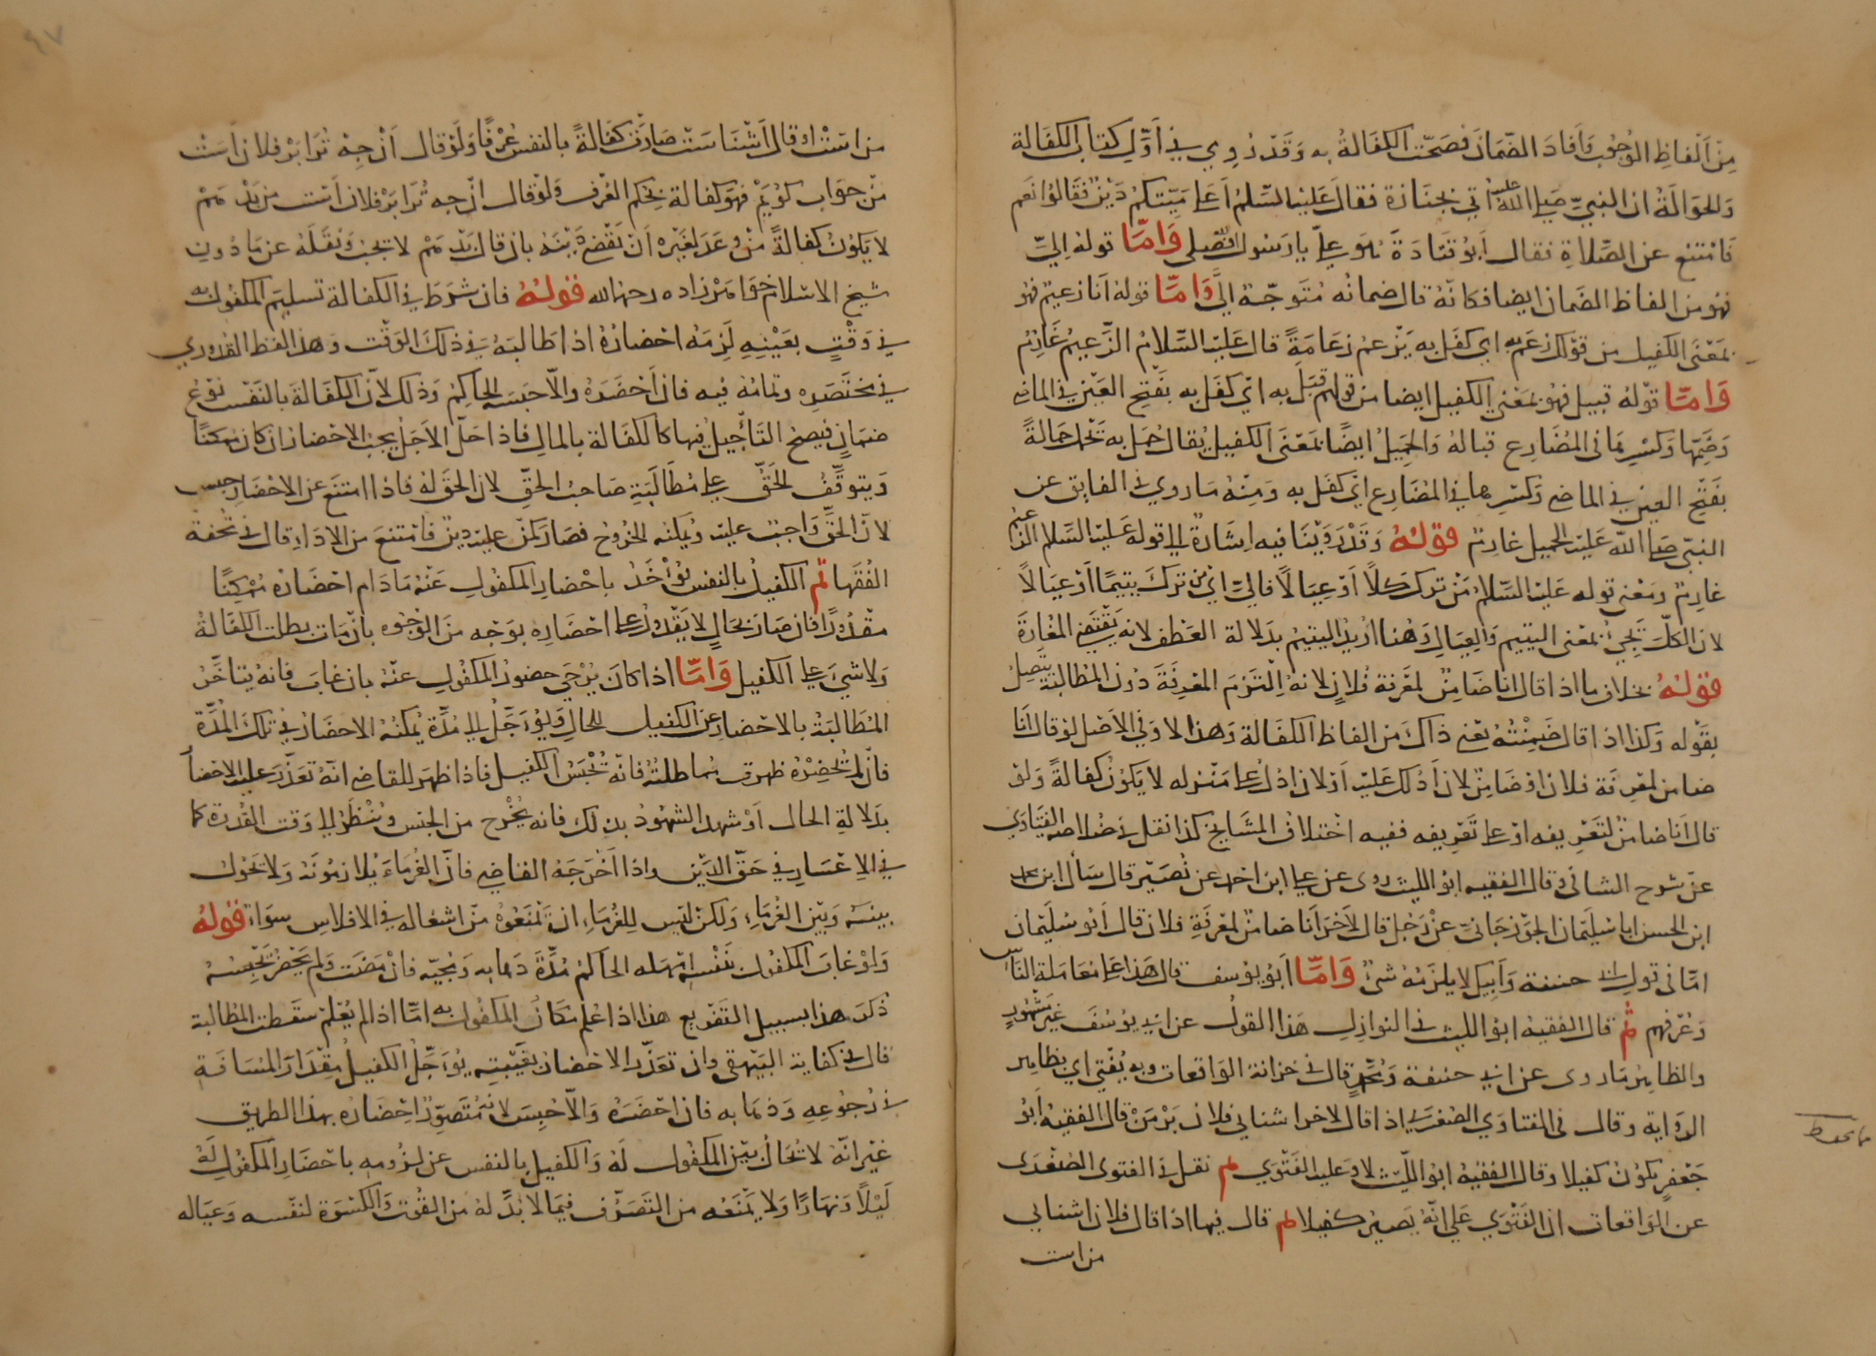 من الفاظ الوجوب وافاد الضمان فصحت الكفالة به وقد روي في اول كتاب الكفالة
والحوالة ان النبي صلى الله عليه اتي بجنازة فقال عليه السلام أعلى ميتكم دين فقالوا نعم
فامتنع عن الصلاة فقال أبو قتادة هو علي يا رسول الله فصلى وَامَّا قوله اليّ
فهو من الفاظ الضمان ايضا فكانه قال ضمانه متوجه الىّ وَامَّا قوله انا زعيم فهو
بمعنى الكفيل من قولك زعم به اي كفل به يزعم زعامةً قال عليه السلام الزعيم غارم
وَامَّا قوله قبيل فهو بمعنى الكفيل ايضا من قولهم قبل به اي كفل به بفتح العين في الماضي
وضمها وكسرها في المضارع قباله والحميل ايضًا بمعنى الكفيل يقال حمل به تحمل حمالةً
بفتح العين في الماضي وكسرها في المضارع اي كفل به ومنه ما روي في الفايق عن
النبي صلى الله عليه الحميل غارم قوله وقد روينا فيه اشارة الى قوله عليه السلام الزعيم
غارم ومعنى قوله عليه السلام من ترك كلا أو عيالا فاليّ اي من ترك يتيمًا او عيالا
لان الكلّ يجيء بمعنى اليتيم والعيال وهنا اريد اليتيم بدلالة العطف لانه يقتضي المغايرة
قوله بخلاف ما اذا قال انا ضامن لمعرفة فلان لانه التزم المعرفة دون المطالبة يتصل
بقوله وكذا اذا قال ضمنته يعني ذاك من الفاظ الكفالة وهذا لا وفي الاصل لو قال انا
ضامن لمعرفة فلان او ضامن لان أدلك عليه او لان ادلك على منزله لا يكون كفالةً ولو
قال انا ضامن لتعريفه او على تعريفه ففيه اختلاف المشايخ كذا نقل في خلاصة الفتاوي
عن شرح الشافي وقال الفقيه ابو الليث روى عن علي ابن احمد عن نصير قال سأل ابن محمد
ابن الحسن ابا سليمان الجوزجاني عن رجل قال لآخر انا ضامن لمعرفة فلان قال أبو سليمان
امّا في قول ابي حنيفة وابيك لا يلزمه شيء وَامَّا أبو يوسف قال هذا على معاملة الناس
وعرفهم ثم قال الفقيه ابو الليث في النوازل هذا القول عن ابي يوسف غير مشهور
والظاهر ما روى عن ابي حنيفة ومحمد قال في خزانة الواقعات وبه يفتي اي بظاهر
الرواية وقال في الفتاوي الصغرى اذا قال لاخر اشنايى فلان بر من قال الفقيه ابو
جعفر يكون كفيلا وقال الفقيه ابو الليث لا وعليه الفتوي ثم نقل في الفتوى الصغرى
عن الواقعات ان الفتوي على انه يصير كفيلا ثم قال فيها اذا قال فلان اشنايى
من است
ما يحفظ
من است او قال اشناست صارت كفالةً بالنفس عرفًا ولو قال انچه ترا بر فلان است
من جواب كويم فهو كفالة بحكم العرف ولو قال انچه ترا بر فلان است من بدهم
لا يكون كفالةً من وعد لغيره ان يقضي دينه بان قال بدهم لا تجب ونقله عن مأذون
شيخ الاسلام خواهرزاده رحمه الله قوله فان شرط في الكفالة تسليم المكفول به
في وقت بعينه لزمه احضاره اذا طالبه في ذلك الوقت وهذا لفظ القدوري
في مختصره وتمامه فيه فان أحضره والا حبسه الحاكم وذلك لان الكفالة بالنفس نوع
ضمان فيصح التأجيل فيها كالكفالة بالمال فاذا حل الاجل يجب الاحضار ان كان ممكنًا
ويتوقف الحق على مطالبة صاحب الحق لان الحق له فاذا امتنع عن الاحضار حبس
لان الحق واجب عليه ويمكنه الخروج فصار كمن عليه دين فامتنع من الاداء قال في تحفة
الفقها ثم الكفيل بالنفس يؤخذ باحضار المكفول عنه ما دام احضاره ممكنًا
مقدورًا فان صار بحال لا يقدر على احضاره بوجه من الوجوه بان مات بطلت الكفالة
ولا شيء على الكفيل وَامَّا اذا كان يرجى حضور المكفول عنه بان غاب فانه يتاخر
المطالبة بالاحضار عن الكفيل للحال ويؤجل الى مدة يمكنه الاحضار في تلك المدة
فان لم يحضره ظهرت مماطلته فانه يحبس الكفيل فاذا ظهر للقاضي انه تعذر عليه الاحضار
بدلالة الحال او شهد الشهود بذلك فانه يخرج من الحبس وينظر الى وقت القدرة كما
في الاعسار في حق الدين واذا اخرجه القاضي فان الغرماء يلازمونه ولا يحول
بينه وبين الغرماء ولكن ليس للغرماء ان تمنعوه من اشغاله في الافلاس سواء قوله
ولو غاب المكفول بنفسه امهله الحاكم مدة ذهابه ومجيه فان مضت ولم يحضر يحبسه
ذكر هذا بسبيل التفريع هذا اذا علم مكان المكفول به امّا اذا لم يعلم سقطت المطالبة
قال في كفاية البيهقي وان تعذر الاحضار بغيبته يؤجل الكفيل مقدار المسافة
في رجوعه وذهابه فان احضره والا حبس لانه متصور احضاره بهذا الطريق
غير انه لا تحال بين المكفول له والكفيل بالنفس عن لزومه باحضار المكفول له
ليلاً ونهارًا ولا يمنعه من التصرف فيما لا بد له من القوت والكسوة لنفسه وعياله
٩٧